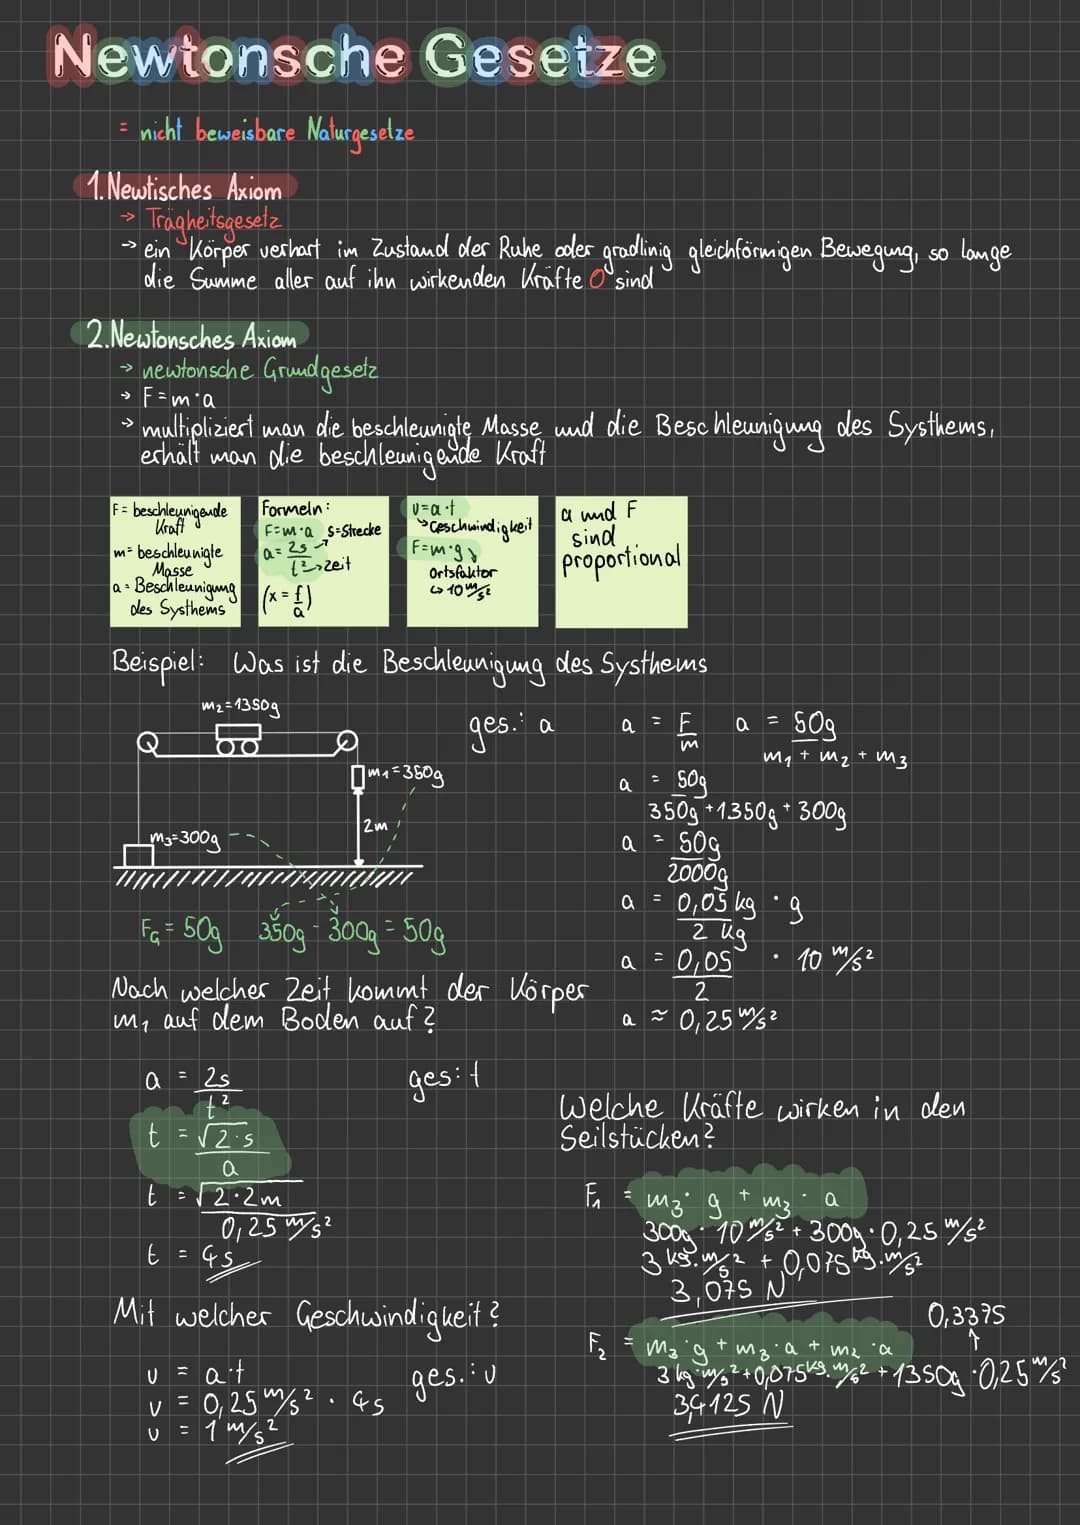 Newtonsche Gesetze
= nicht beweisbare Naturgesetze
1. Newtisches Axiom
→ Trägheitsgesetz
→ ein Körper verhart im Zustand der Ruhe oder gradlinig gleichförmigen Bewegung, so lange
die Summe aller auf ihn wirkenden Kräfte 0 sind
2. Newtonsches Axiom
→ newtonsche Grundgesetz
→ F = m · a
→ multipliziert man die beschleunigte Masse und die Beschleunigung des Systhems,
erhält man die beschleunigende Kraft
F = beschleunigende
Kraft
m = beschleunigte
Masse
a = Beschleunigung
des Systhems
Formeln:
F = m · a s = Strecke
a = 2s / t² → Zeit
(x = f / a)
v = a · t
↳ Geschwindigkeit
F = m · g
Ortsfaktor
↳ 10 m/s²
a und F
sind
proportional
Beispiel: Was ist die Beschleunigung des Systhems
m₂ = 1350g
m₁ = 350g
2m
m₃ = 300g
F_G = 50g 350g - 300g = 50g
ges.: a
a = F / m a = 50g / m₁ + m₂ + m₃
a = 50g / 350g + 1350g + 300g
a = 50g / 2000g
a = 0,05 kg / 2 kg · g
a = 0,05 / 2 · 10 m/s²
a ≈ 0,25 m/s²
Nach welcher Zeit kommt der Körper
m₁ auf dem Boden auf?
a = 2s / t² ges: t
t = √2·s / a
t = √2·2m / 0,25 m/s²
t = 4s
Mit welcher Geschwindigkeit?
v = a·t ges.: v
v = 0,25 m/s² · 4s
v = 1 m/s²
Welche Kräfte wirken in den
Seilstücken?
F₁ = m₃ · g + m₃ · a
300g · 10 m/s² + 300g · 0,25 m/s²
3 kg · m/s² + 0,075 kg · m/s²
3,075 N
0,3375
↑
F₂ = m₃ · g + m₃ · a + m₂ · a
3 kg · m/s² + 0,075 kg · m/s² + 1350g · 0,25 m/s²
3,4125 N